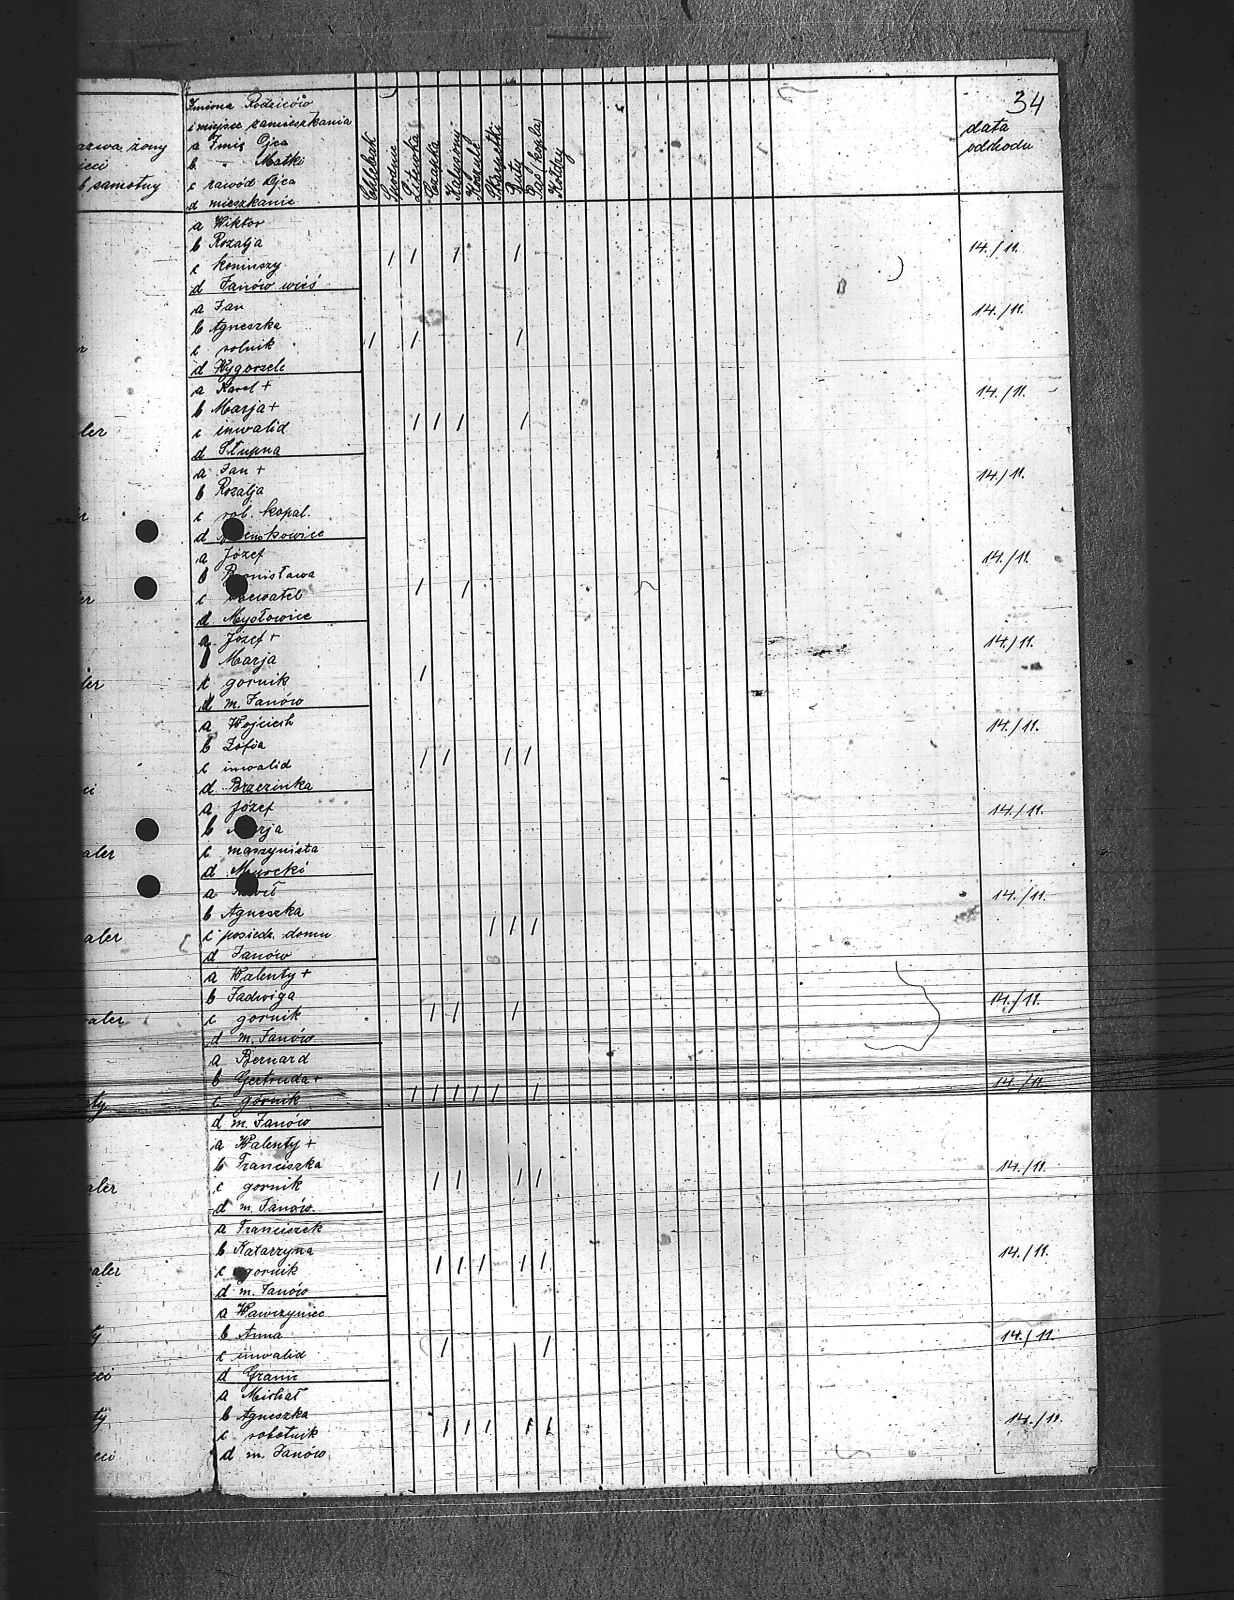 34
azwa żony
ieci
b samotny
Imiona Rodziców
i miejsce zamieszkania
a Imię Ojca
b " Matki
c zawód Ojca
d mieszkanie
Chlebak
Spodnie
Literwka
Kalesony
Koszule
Skarpetki
Buty
Pas / kopla
Kotdry
data
odchodu
a Wiktor
b Rozalja
c koniuszy
d Janów wieś
14./11.
a Jan
b Agnieszka
c rolnik
d Wygorzele
14./11.
a Karol +
b Marja +
c inwalid
d Słupna
14./11.
ler
a Jan +
b Rozalja
c rob. kopal.
d
14./11.
a Józef
b Bronisława
c
d Mysłowice
14./11.
a Józef +
b Marja
c gornik
d m. Janów
14./11.
ler
a Wojciech
b Zofia
c inwalid
d Brzezinka
14./11.
a Józef
b Marja
c maszynista
d Murcki
14./11.
aler
a
b Agneszka
c posiedz. domu
d Janów
14./11.
aler
a Walenty +
b Jadwiga
c gornik
d m. Janów
14./11.
aler
a Bernard
b Gertruda +
c górnik
d m. Janów
14./11.
aty
a Walenty +
b Franciszka
c gornik
d m. Janów
14./11.
aler
a Franciszek
b Katarzyna
c gornik
d m. Janów
14./11.
aler
a Wawrzyniec
b Anna
c inwalid
d
14./11.
ty
a Michał
b Agneszka
c robotnik
d m. Janów
14./11.
ty
eci